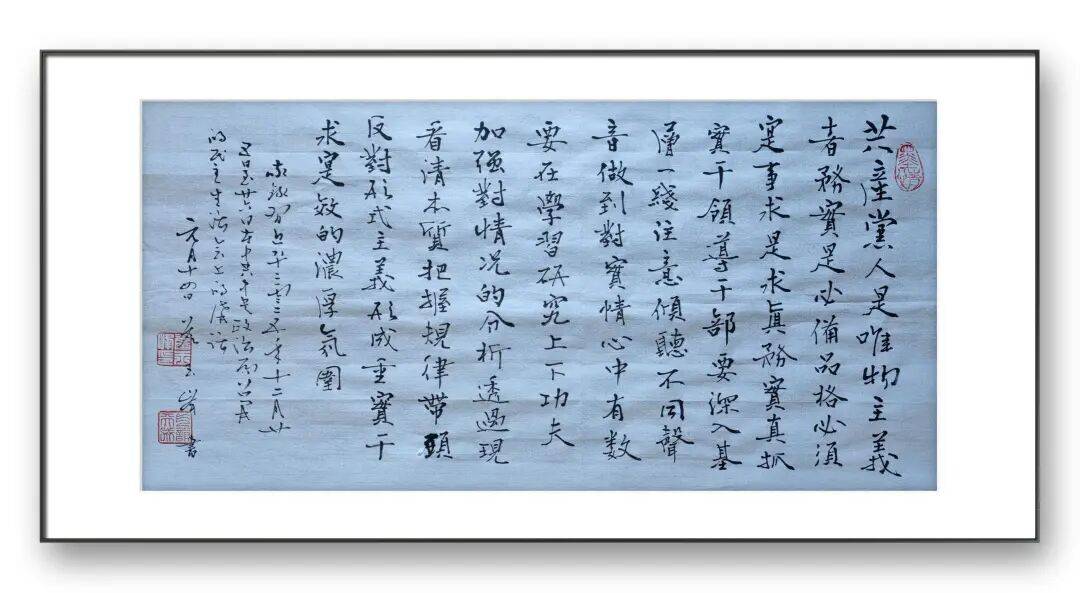 共產黨人是唯物主義
者務實是必備品格必須
寔事求是求眞務實真抓
實干領導干部要深入基
層一綫注意傾聽不同聲
音做到對實情心中有数
要在學習研究上下功夫
加强對情况的分析透過現
看清本質把握規律帶頭
反對形式主義形成重實干
求寔效的濃厚氛圍
敬錄習近平二零二五年十二月廿
五日至廿六日在中共中央政治局召開
的民主生活会上的講話
元月十四日 書